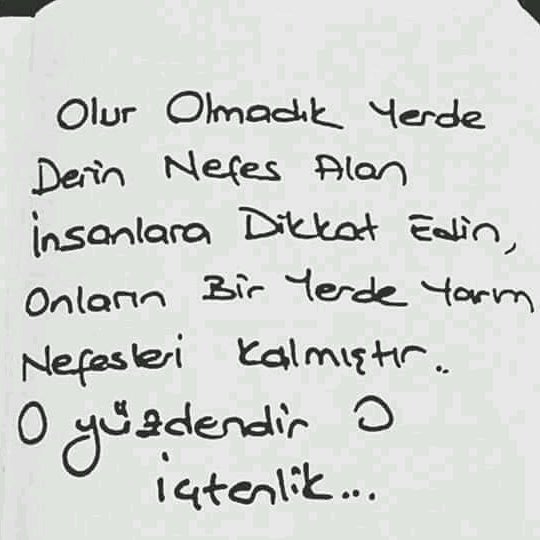 Olur Olmadık Yerde
Derin Nefes Alan
İnsanlara Dikkat Edin,
Onların Bir Yerde Yarım
Nefesleri Kalmıştır..
O yüzdendir O
İçtenlik...